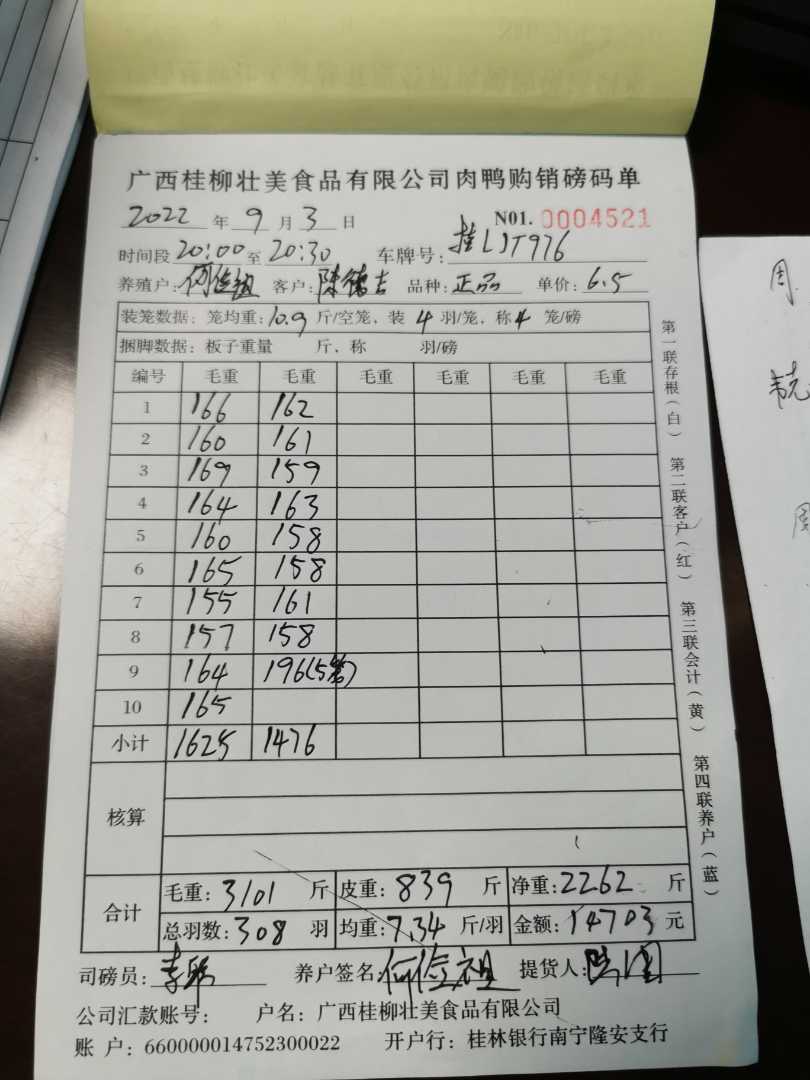 广西桂柳壮美食品有限公司肉鸭购销磅码单
2022 年 9 月 3 日 N01. 0004521
时间段 20:00 至 20:30 车牌号: 桂LJT976
养殖户: 何俭祖 客户: 陈德吉 品种: 正品 单价: 6.5
装笼数据: 笼均重: 10.9 斤/空笼、装 4 羽/笼, 称 4 笼/磅
捆脚数据: 板子重量 斤, 称 羽/磅
编号 毛重 毛重 毛重 毛重 毛重 毛重
1 166 162
2 160 161
3 169 159
4 164 163
5 160 158
6 165 158
7 155 161
8 157 158
9 164 196(5笼)
10 165
小计 1625 1476
核算
合计
毛重: 3101 斤 皮重: 839 斤 净重: 2262 斤
总羽数: 308 羽 均重: 7.34 斤/羽 金额: 14703 元
司磅员: 养户签名: 何俭祖 提货人:
公司汇款账号: 户名: 广西桂柳壮美食品有限公司
账 户: 660000014752300022 开户行: 桂林银行南宁隆安支行
第一联存根(白) 第二联客户(红) 第三联会计(黄) 第四联养户(蓝)
周